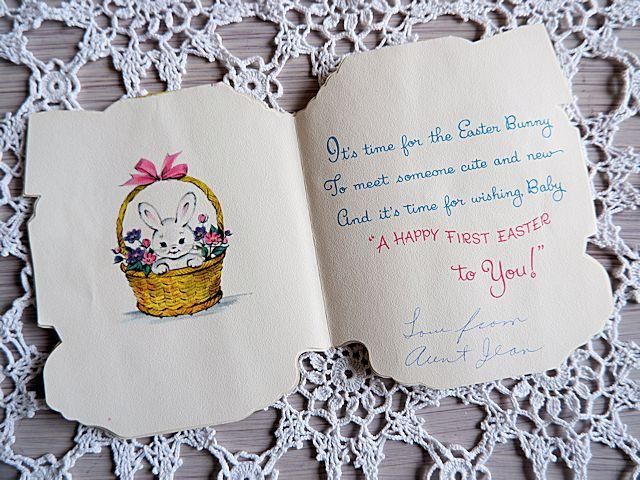 It's time for the Easter Bunny
To meet someone cute and new
And it's time for wishing, Baby
"A HAPPY FIRST EASTER
to You!"
Love from
Aunt Jean